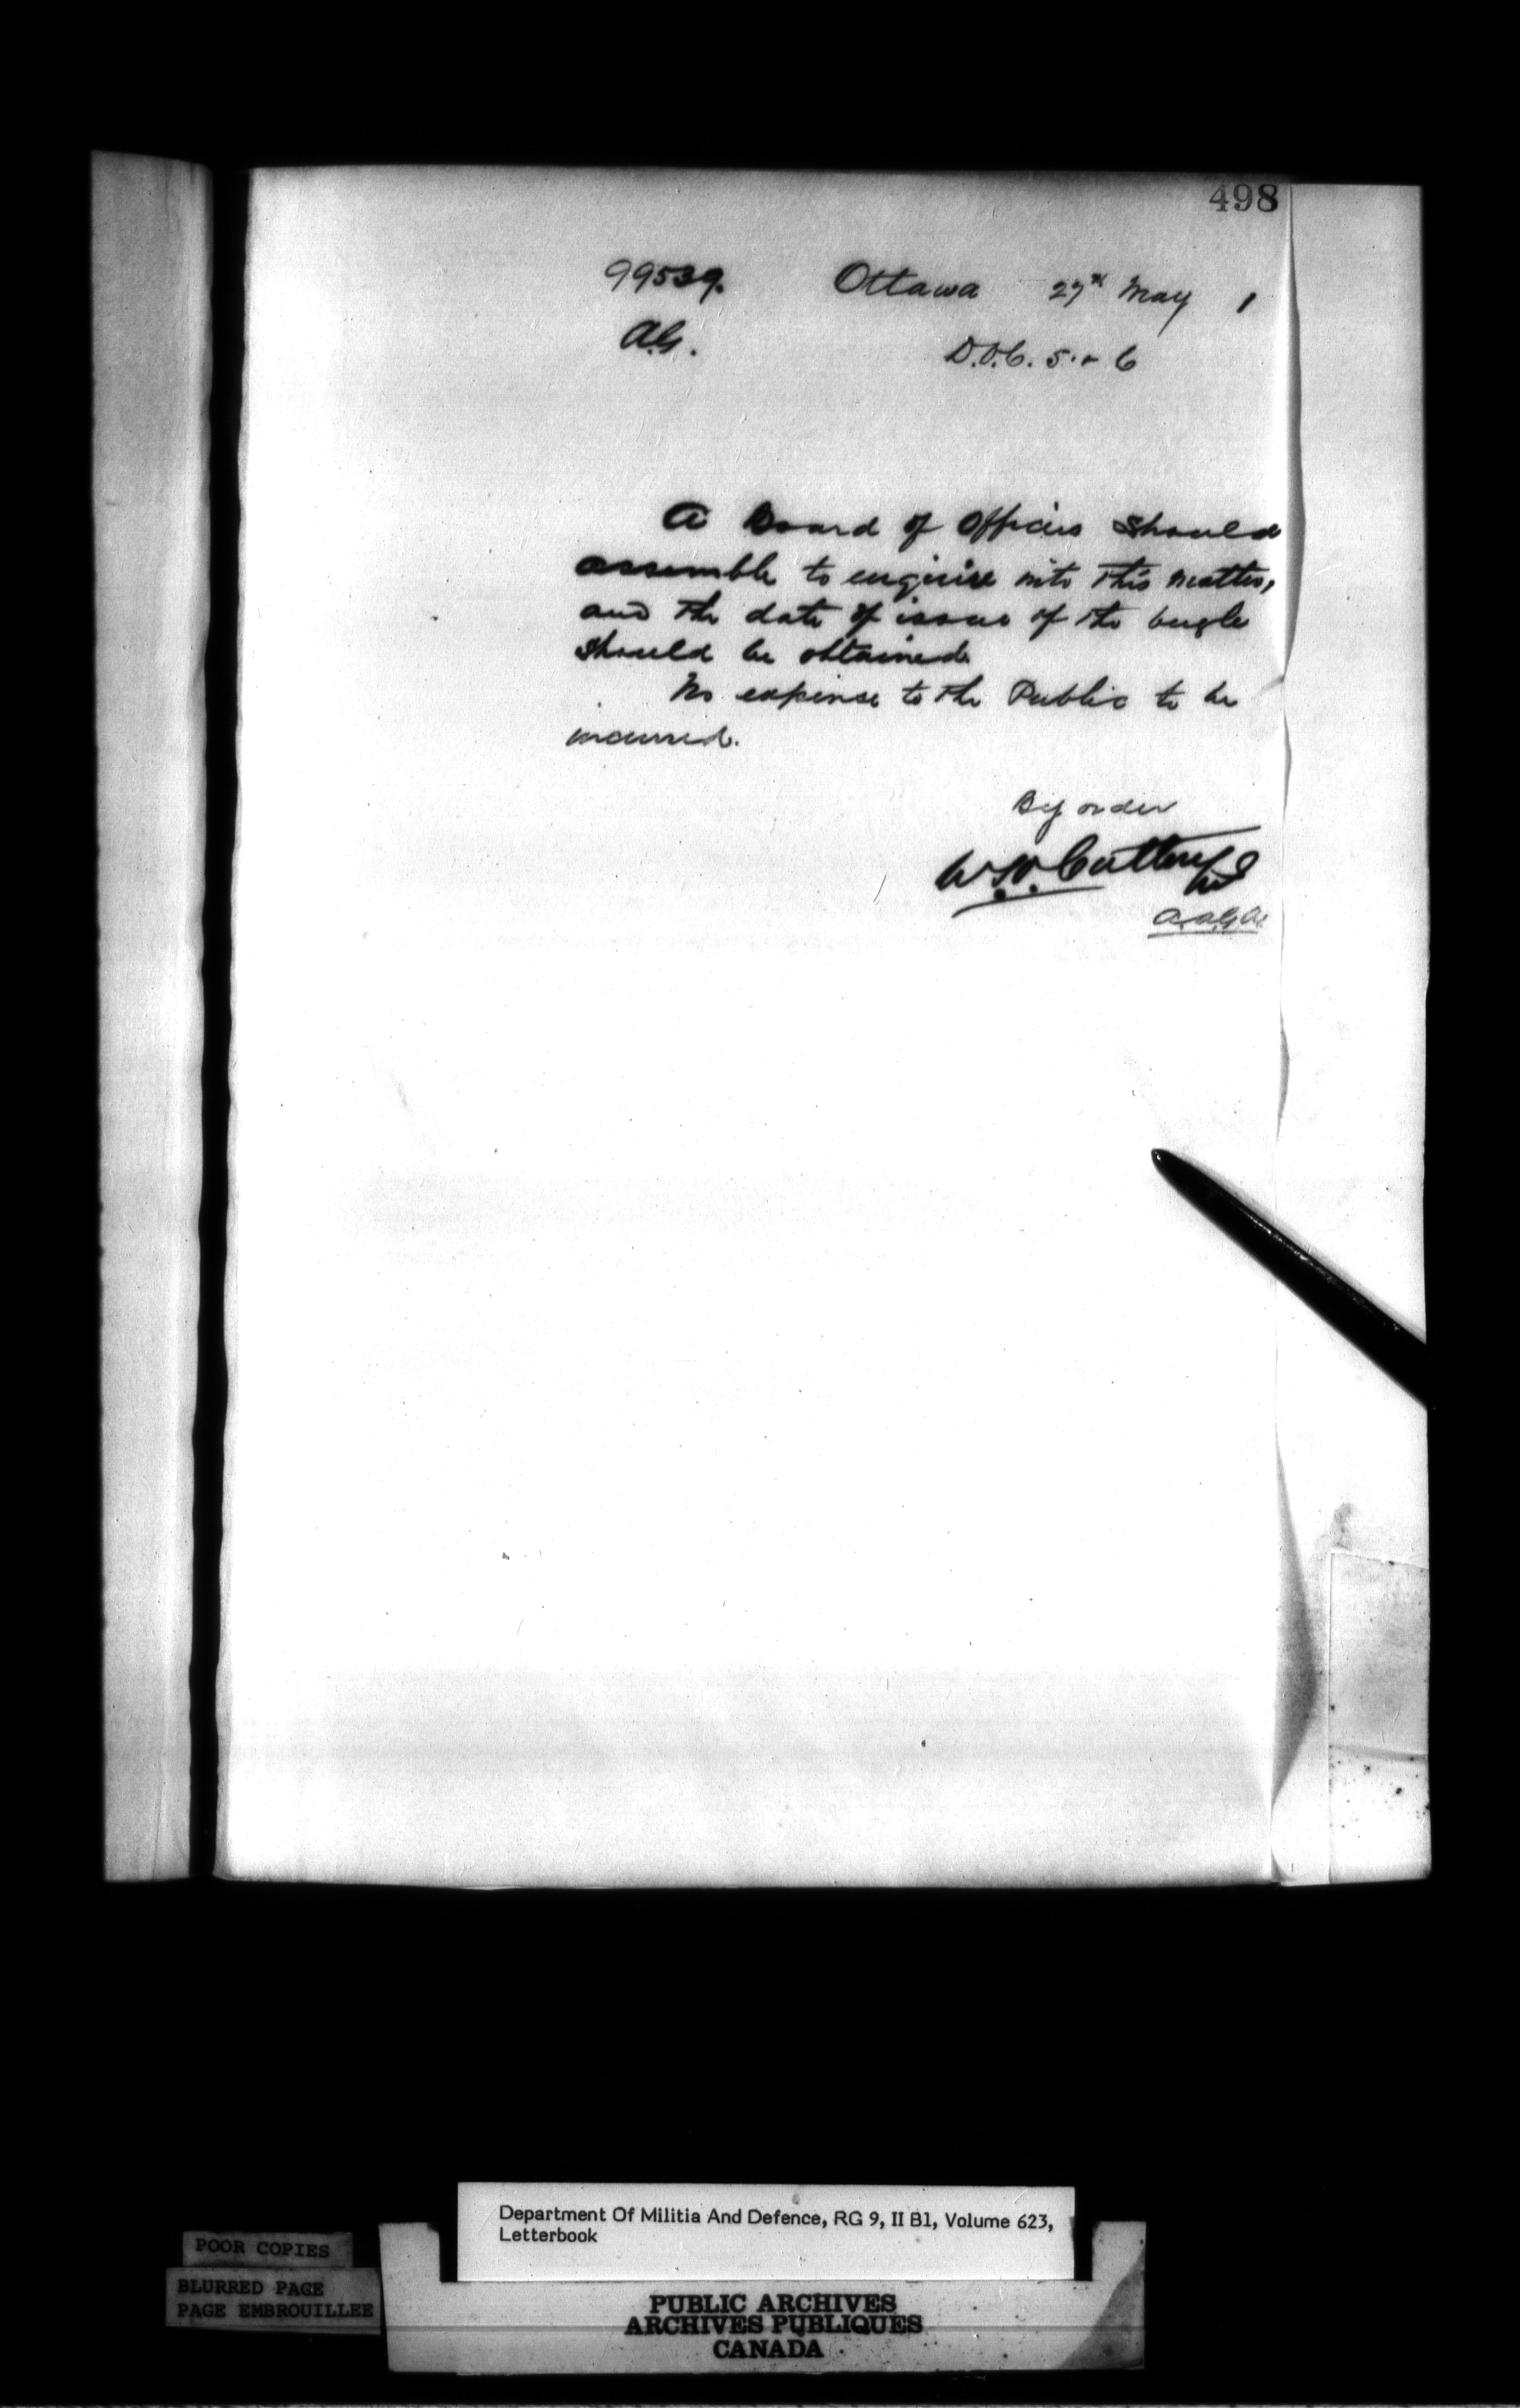 498
99539. Ottawa 27th May 1
A.G. D.O.C. 5 & 6
A Board of Officers should
assemble to enquire into this matter,
and the date of issue of the bugle
should be obtained.
No expense to the Public to be
incurred.
By order
W.H. Cotton
A.A.G.A.
Department Of Militia And Defence, RG 9, II B1, Volume 623,
Letterbook
POOR COPIES
BLURRED PAGE
PAGE EMBROUILLEE
PUBLIC ARCHIVES
ARCHIVES PUBLIQUES
CANADA